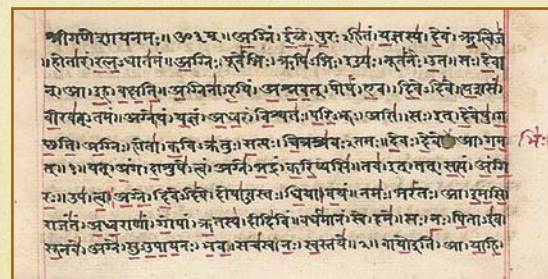 श्रीगणेशायनमः॥ॐ३म्॥ अग्निं। ईळे। पुरःऽहितं। यज्ञस्य। देवं। ऋत्विजं
॥होतारं। रत्नऽधातमं॥ अग्निः। पूर्वेभिः। ऋषिऽभिः। ईड्यः। नूतनैः। उत। सः। देवा
न्। आ। इह। वक्षति॥ अग्निना। रयिं। अश्नवत्। पोषं। एव। दिवेऽदिवे। यशसं।
वीरवत्ऽतमं॥ अग्ने। यं। यज्ञं। अध्वरं। विश्वतः। परिऽभूः। असि। सः। इत्। देवेषु। ग
च्छति॥ अग्निः। होता। कविऽक्रतुः। सत्यः। चित्रश्रवःऽतमः। देवः। देवे आ। गम भिः।
त्॥१॥ यत्। अंग। दाशुषे। त्वं। अग्ने। भद्रं। करिष्यसि। तव। इत्। तत्। सत्यं। अंगि
रः॥ उप। त्वा। अग्ने। दिवेऽदिवे। दोषाऽवस्तः। धिया। वयं। नमः। भरंतः। आ। इमसि॥
राजंतं। अध्वराणां। गोपां। ऋतस्य। दीदिविं। वर्धमानं। स्वे। दमे॥ सः। नः। पिताऽइव।
सूनवे। अग्ने। सुऽउपायनः। भव। सचस्व। नः। स्वस्तये॥२॥ वायो इति। आ। याहि।